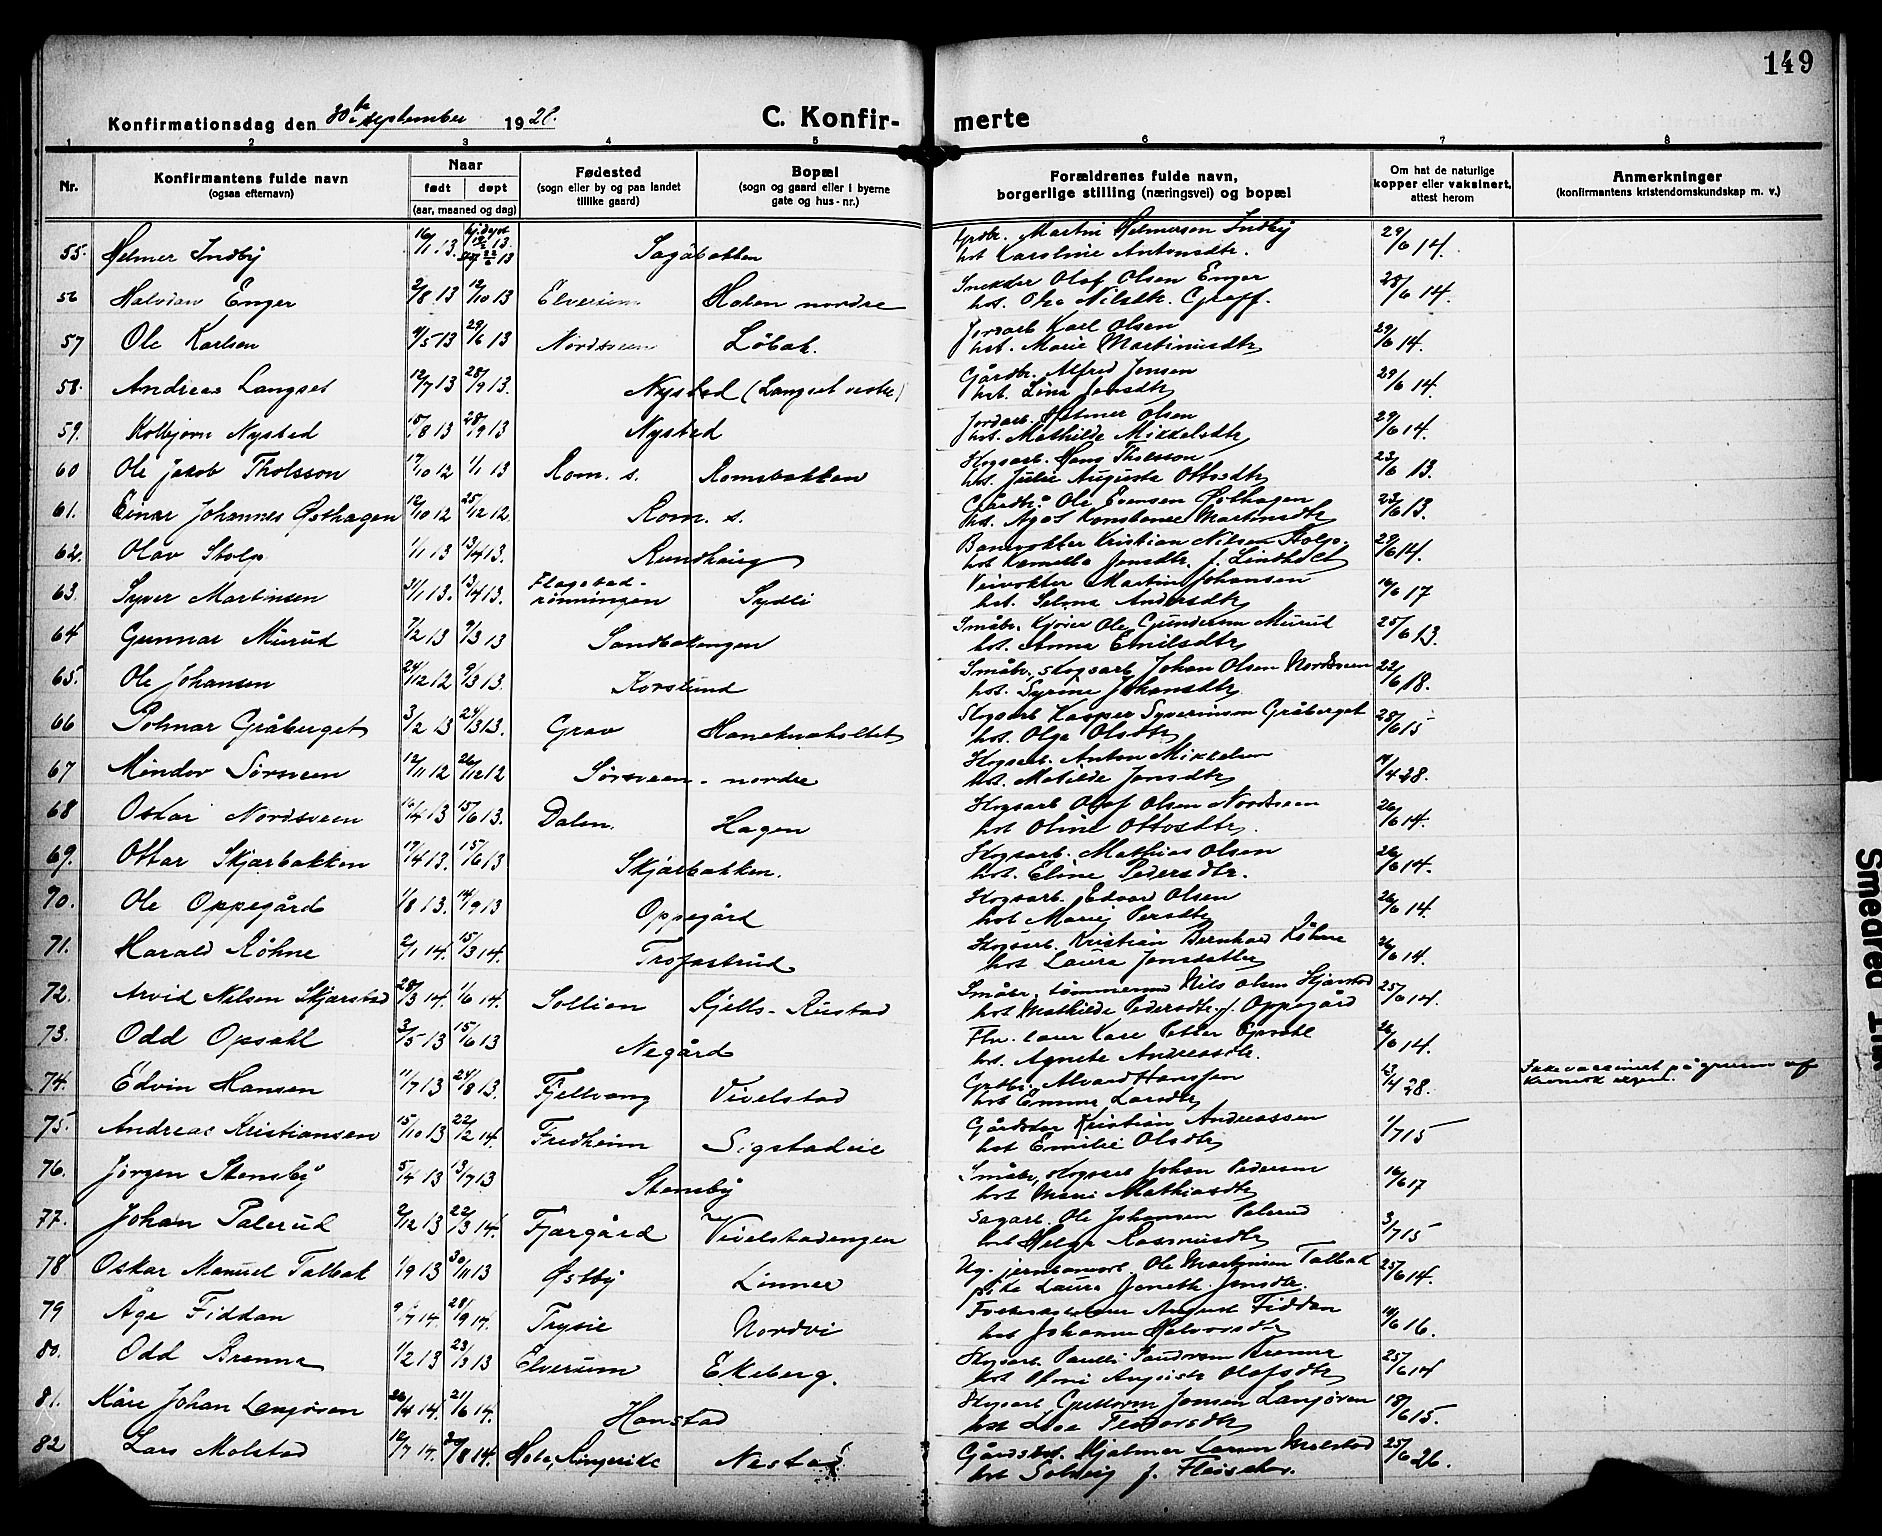 149
Konfirmationsdag den 30te september 1928.
C. Konfirmerte
1 2 3 4 5 6 7 8
Nr.
Konfirmantens fulde navn
(ogsaa efternavn)
Naar
født døpt
(aar, maaned og dag)
Fødested
(sogn eller by og paa landet
tillike gaard)
Bopæl
(sogn og gaard eller i byerne
gate og hus-nr.)
Forældrenes fulde navn,
borgerlige stilling (næringsvei) og bopæl
Om hat de naturlige
kopper eller vaksinert,
attest herom
Anmerkninger
(konfirmantens kristendomskundskap m. v.)
55. Helmer Indby 16/1 13. Sagbakken Martin Helmersen Indby 29/6 14.
hst. Karoline Antonsdtr.
56 Halvdan Enger 2/8 13 12/10 13 Elverum Holen nordre Snekker Olaf Olsen Enger 28/6 14.
hst. Nilsdtr. Graff.
57 Ole Karlsen 9/5 13 29/6 13 Nordsveen Løbak. Jordarb. Karl Olsen 29/6 14.
hst. Marie Martinusdtr
58. Andreas Langset 12/7 13 28/9 13. Nystad (Langset vestre) Gårdbr. Alfred Jensen 29/6 14.
hst. Lina Jensdtr
59. Kolbjørn Nystad 15/8 13 28/9 13 Nystad Jordarb. Helmer Olsen 29/6 14.
hst. Mathilde Mikkelsdtr
60 Ole Jakob Tholsson 17/10 12 1/1 13 Rom. s. Romsbakken Skogsarb. Hans Tholsson 23/6 13.
hst. Julie Augusta Ottosdtr
61. Einar Johannes Østhagen 12/10 12 25/12 12. Rom. s. Gårdbr. Ole Evensen Østhagen 23/6 13.
hst. Konstanse Martinsdtr
62. Olav Stolp 1/1 13 13/4 13. Rundhaug Banevokter Kristian Nilsen Stolp. 29/6 14.
hst Kamilla Jensdtr f. Lindholt
63. Syver Martinsen 31/1 13. 13/4 13. Flagstad-rønningen Sydli Veivokter Martin Johansen 16/6 17
hst. Selma Andersdtr
64 Gunnar Murud 7/2 13 9/3 13 Sandbakengen Småbr. Ole Gundersen Murud 25/6 13.
hst. Anna Emilsdtr
65. Ole Johansen 24/12 12 9/3 13. Korslund Småbr. skogsarb. Johan Olsen Nordsveen 22/6 18.
hst. Syrine Johansdtr
66 Polmar Gråberget 3/2 13 24/3 13. Grav Haneknaholtet Skogsarb Kasper Syverinsen Gråberget 28/6 15
hst. Olga Olsdtr
67 Mindor Sørsveen 12/11 12 26/12 12 Sørsveen - nordre Skogsarb. Anton Mikkelsen 19/4 28.
hst. Matilde Jonsdtr
68 Oskar Nordsveen 16/4 13 15/6 13. Dalen. Hagen Skogsarb Olaf Olsen Nordsveen 26/6 14.
hst Oline Ottosdtr.
69. Ottar Skjærbakken 17/4 13. 15/6 13 Skjærbakken. Skogsarb. Mathias Olsen 26/6 14.
hst. Eline Pedersdtr.
70. Ole Oppegård 1/8 13. 14/9 13 Oppegård Skogsarb. Edvard Olsen 26/6 14.
hst Marie Persdtr
71. Harald Røhne 2/1 14. 15/3 14. Trofastrud Skogsarb. Kristian Bernhard Røhne 26/6 14.
hst Laura Jonsdatter
72. Arvid Nilsen Skjærstad 28/3 14. 1/6 14. Sollien Kjells-Rustad Småbr. tømmermd Nils Olsen Skjærstad 25/6 14.
hst Mathilde Pedersdtr. f. Oppegård
73. Odd Opsahl 3/5 13 15/6 13 Negård 26/6 14.
hst. Agnete Andreasdtr.
74. Edvin Hansen 11/7 13 24/8 13. Fjellvang Vivelstad Gårdbr. Alvard Hanssen 13/4 28. Ikke vaccineret på grunn af
hst Emma Larsdtr kronisk
75. Andreas Kristiansen 15/10 13 22/2 14. Fredheim Sigstadeie Kristian Andreassen 1/7 15
hst Emilie Olsdtr
76. Jørgen Stensby 5/4 13 13/7 13 Stensby Småbr, skogsarb Johan Pedersen 16/6 17
hst Mari Mathiasdtr
77. Johan Palerud 2/12 13 22/3 14. Fjærgård Vivelstadengen Sagarb. Ole Johansen Palerud 3/7 15
hst Helga Rasmusdtr
78 Oskar Manuel Talbak 1/9 13 30/11 13 Østby Linner Ug. jernbanearb. Ole Martinsen Talbak 25/6 14.
pike Laura Jensdtr.
79 Åge Fiddan 28/9 14. Trysil Nordvi August Fiddan 16.
hst Johanne Halvorsdtr
80. Odd Brenna 1/2 13 23/3 13 Elverum Ekeberg. Skogsarb. Brenna 25/6 14
hst Olafsdtr
81. Kåre Johan Langøren 26/4 14. 21/6 14. Hanstad Skogsarb Guttorm Jensen Langøren 18/6 15.
hst Lea Teodorsdtr
82 Lars Molstad 8 14. Hole, Ringerike Nesta Hjalmar Larsen Molstad 25/6 26.
hst Solveig f. Fleischer.